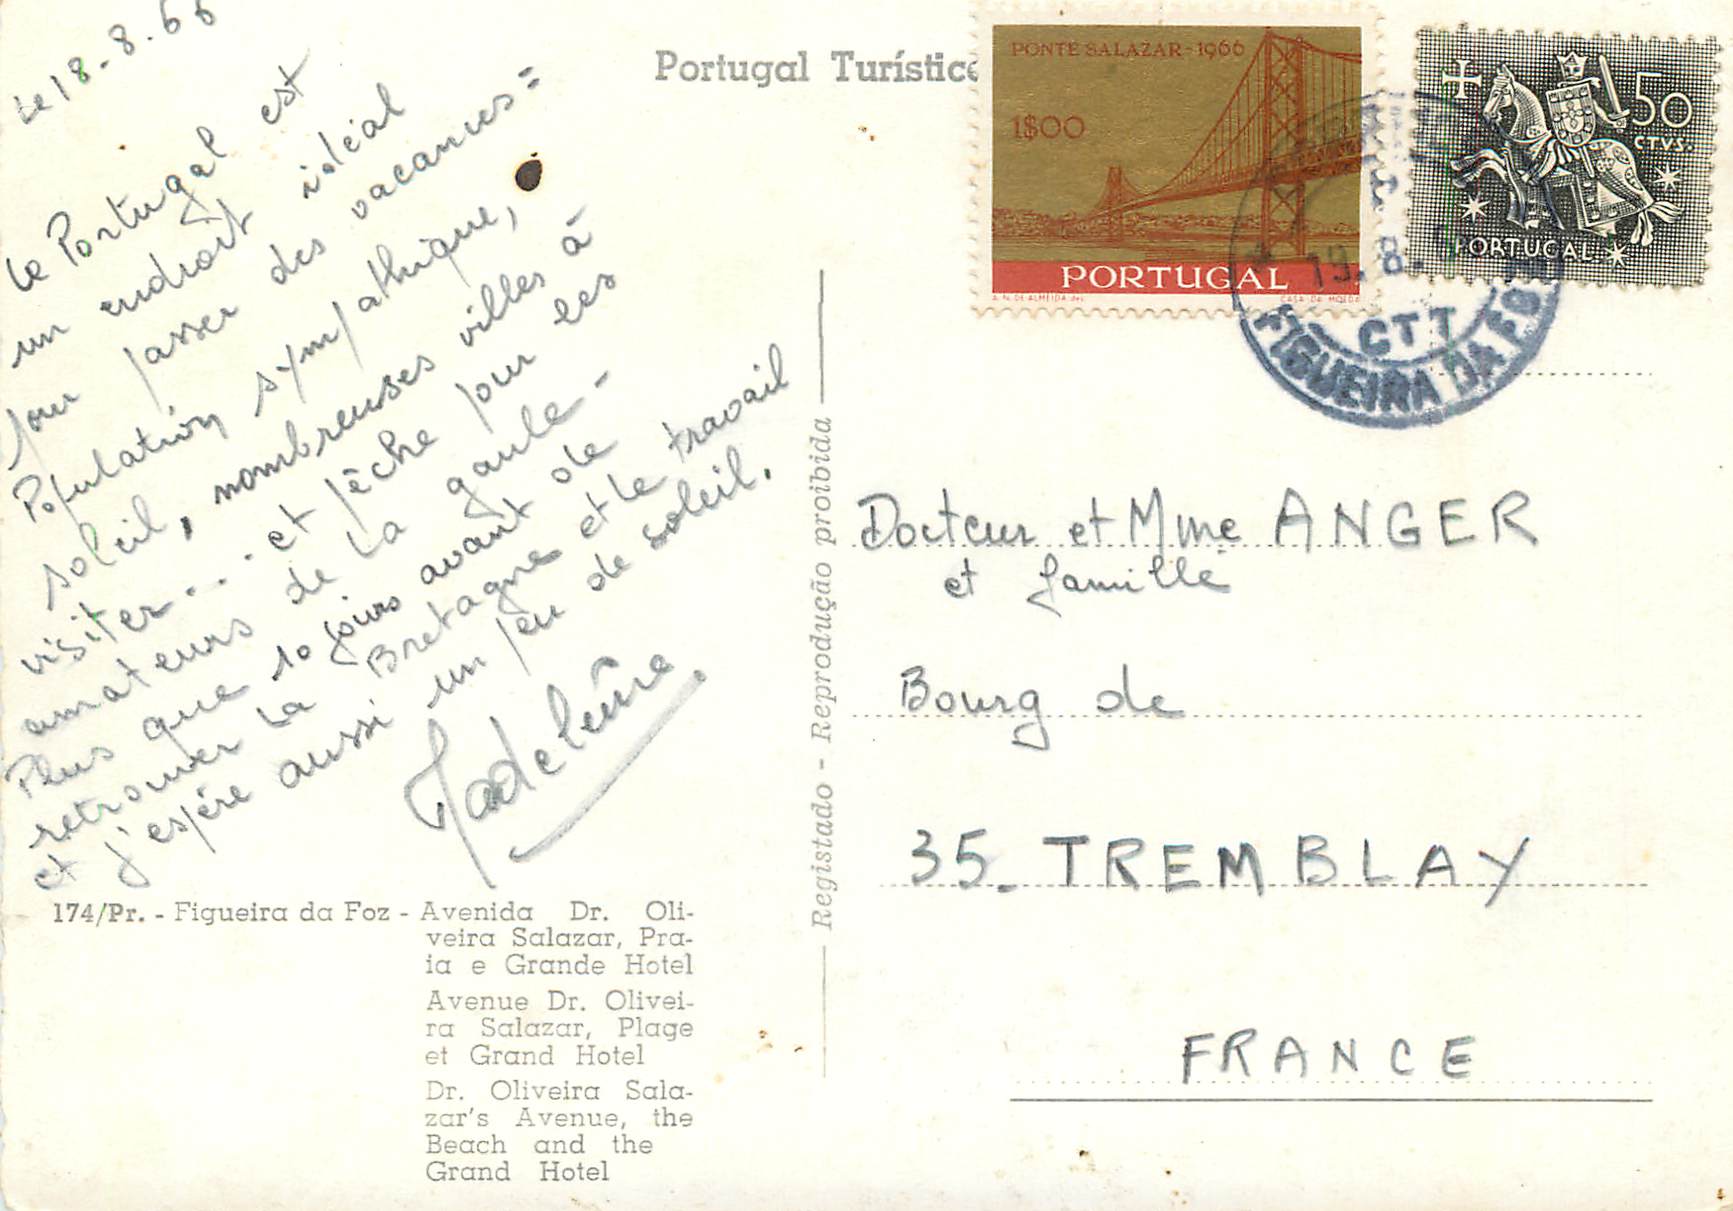 Le 18-8.66
Le Portugal est
un endroit idéal
pour passer des vacances =
Population sympathique,
soleil, nombreuses villes à
visiter... et pêche pour les
amateurs de la gaule -
Plus que 10 jours avant de
retrouver la Bretagne et le travail
et j'espère aussi un peu de soleil.
Madeleine
Portugal Turístico
PONTE SALAZAR-1966
1$00
PORTUGAL
A. N. DE ALMEIDA des.
CASA DA MOEDA
50
CTVS.
PORTUGAL
19. 8.
CTT
FIGUEIRA DA FOZ
Registado - Reprodução proibida
Docteur et Mme ANGER
et famille
Bourg de
35_ TREMBLAY
FRANCE
174/Pr. - Figueira da Foz - Avenida Dr. Oli-
veira Salazar, Pra-
ia e Grande Hotel
Avenue Dr. Olivei-
ra Salazar, Plage
et Grand Hotel
Dr. Oliveira Sala-
zar's Avenue, the
Beach and the
Grand Hotel